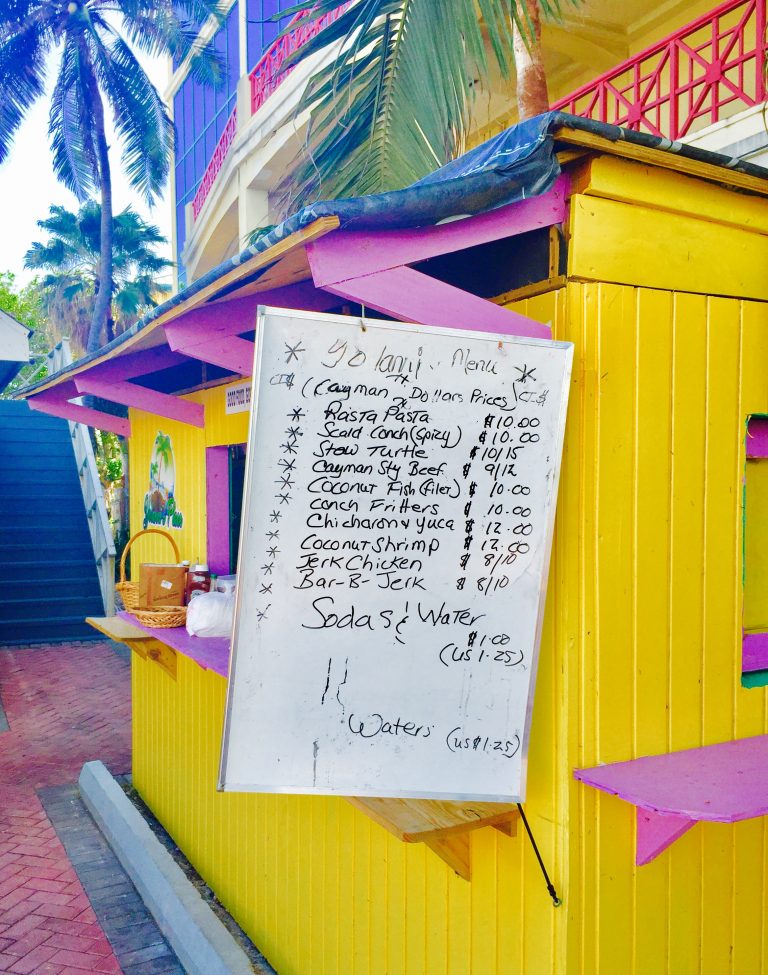 * Menu *
CI$ (Cayman Dollars Prices) CI$
* Rasta Pasta $10.00
* Scald Conch (Spizy) $10.00
* Stew Turtle $10/15
* Cayman Sty Beef $9/12
* Coconut Fish (Filet) $10.00
* Conch Fritters $10.00
* Chicharon & Yuca $12.00
* Coconut Shrimp $12.00
* Jerk Chicken $8/10
* Bar-B-Jerk $8/10
* Sodas & Water
$1.00
(US 1.25)
Waters (US$1.25)